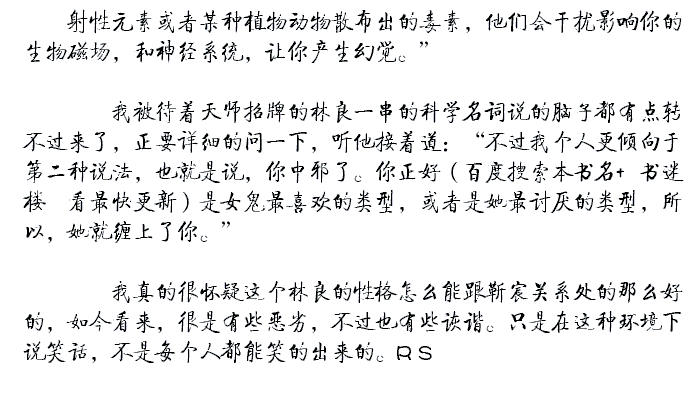 射性元素或者某种植物动物散布出的毒素，他们会干扰影响你的
生物磁场，和神经系统，让你产生幻觉。”
我被待着天师招牌的林良一串的科学名词说的脑子都有点转
不过来了，正要详细的问一下，听他接着道：“不过我个人更倾向于
第二种说法，也就是说，你中邪了。你正好（百度搜索本书名+ 书迷
楼 看最快更新）是女鬼最喜欢的类型，或者是她最讨厌的类型，所
以，她就缠上了你。”
我真的很怀疑这个林良的性格怎么能跟靳宸关系处的那么好
的，如今看来，很是有些恶劣，不过也有些诙谐。只是在这种环境下
说笑话，不是每个人都能笑的出来的。RS